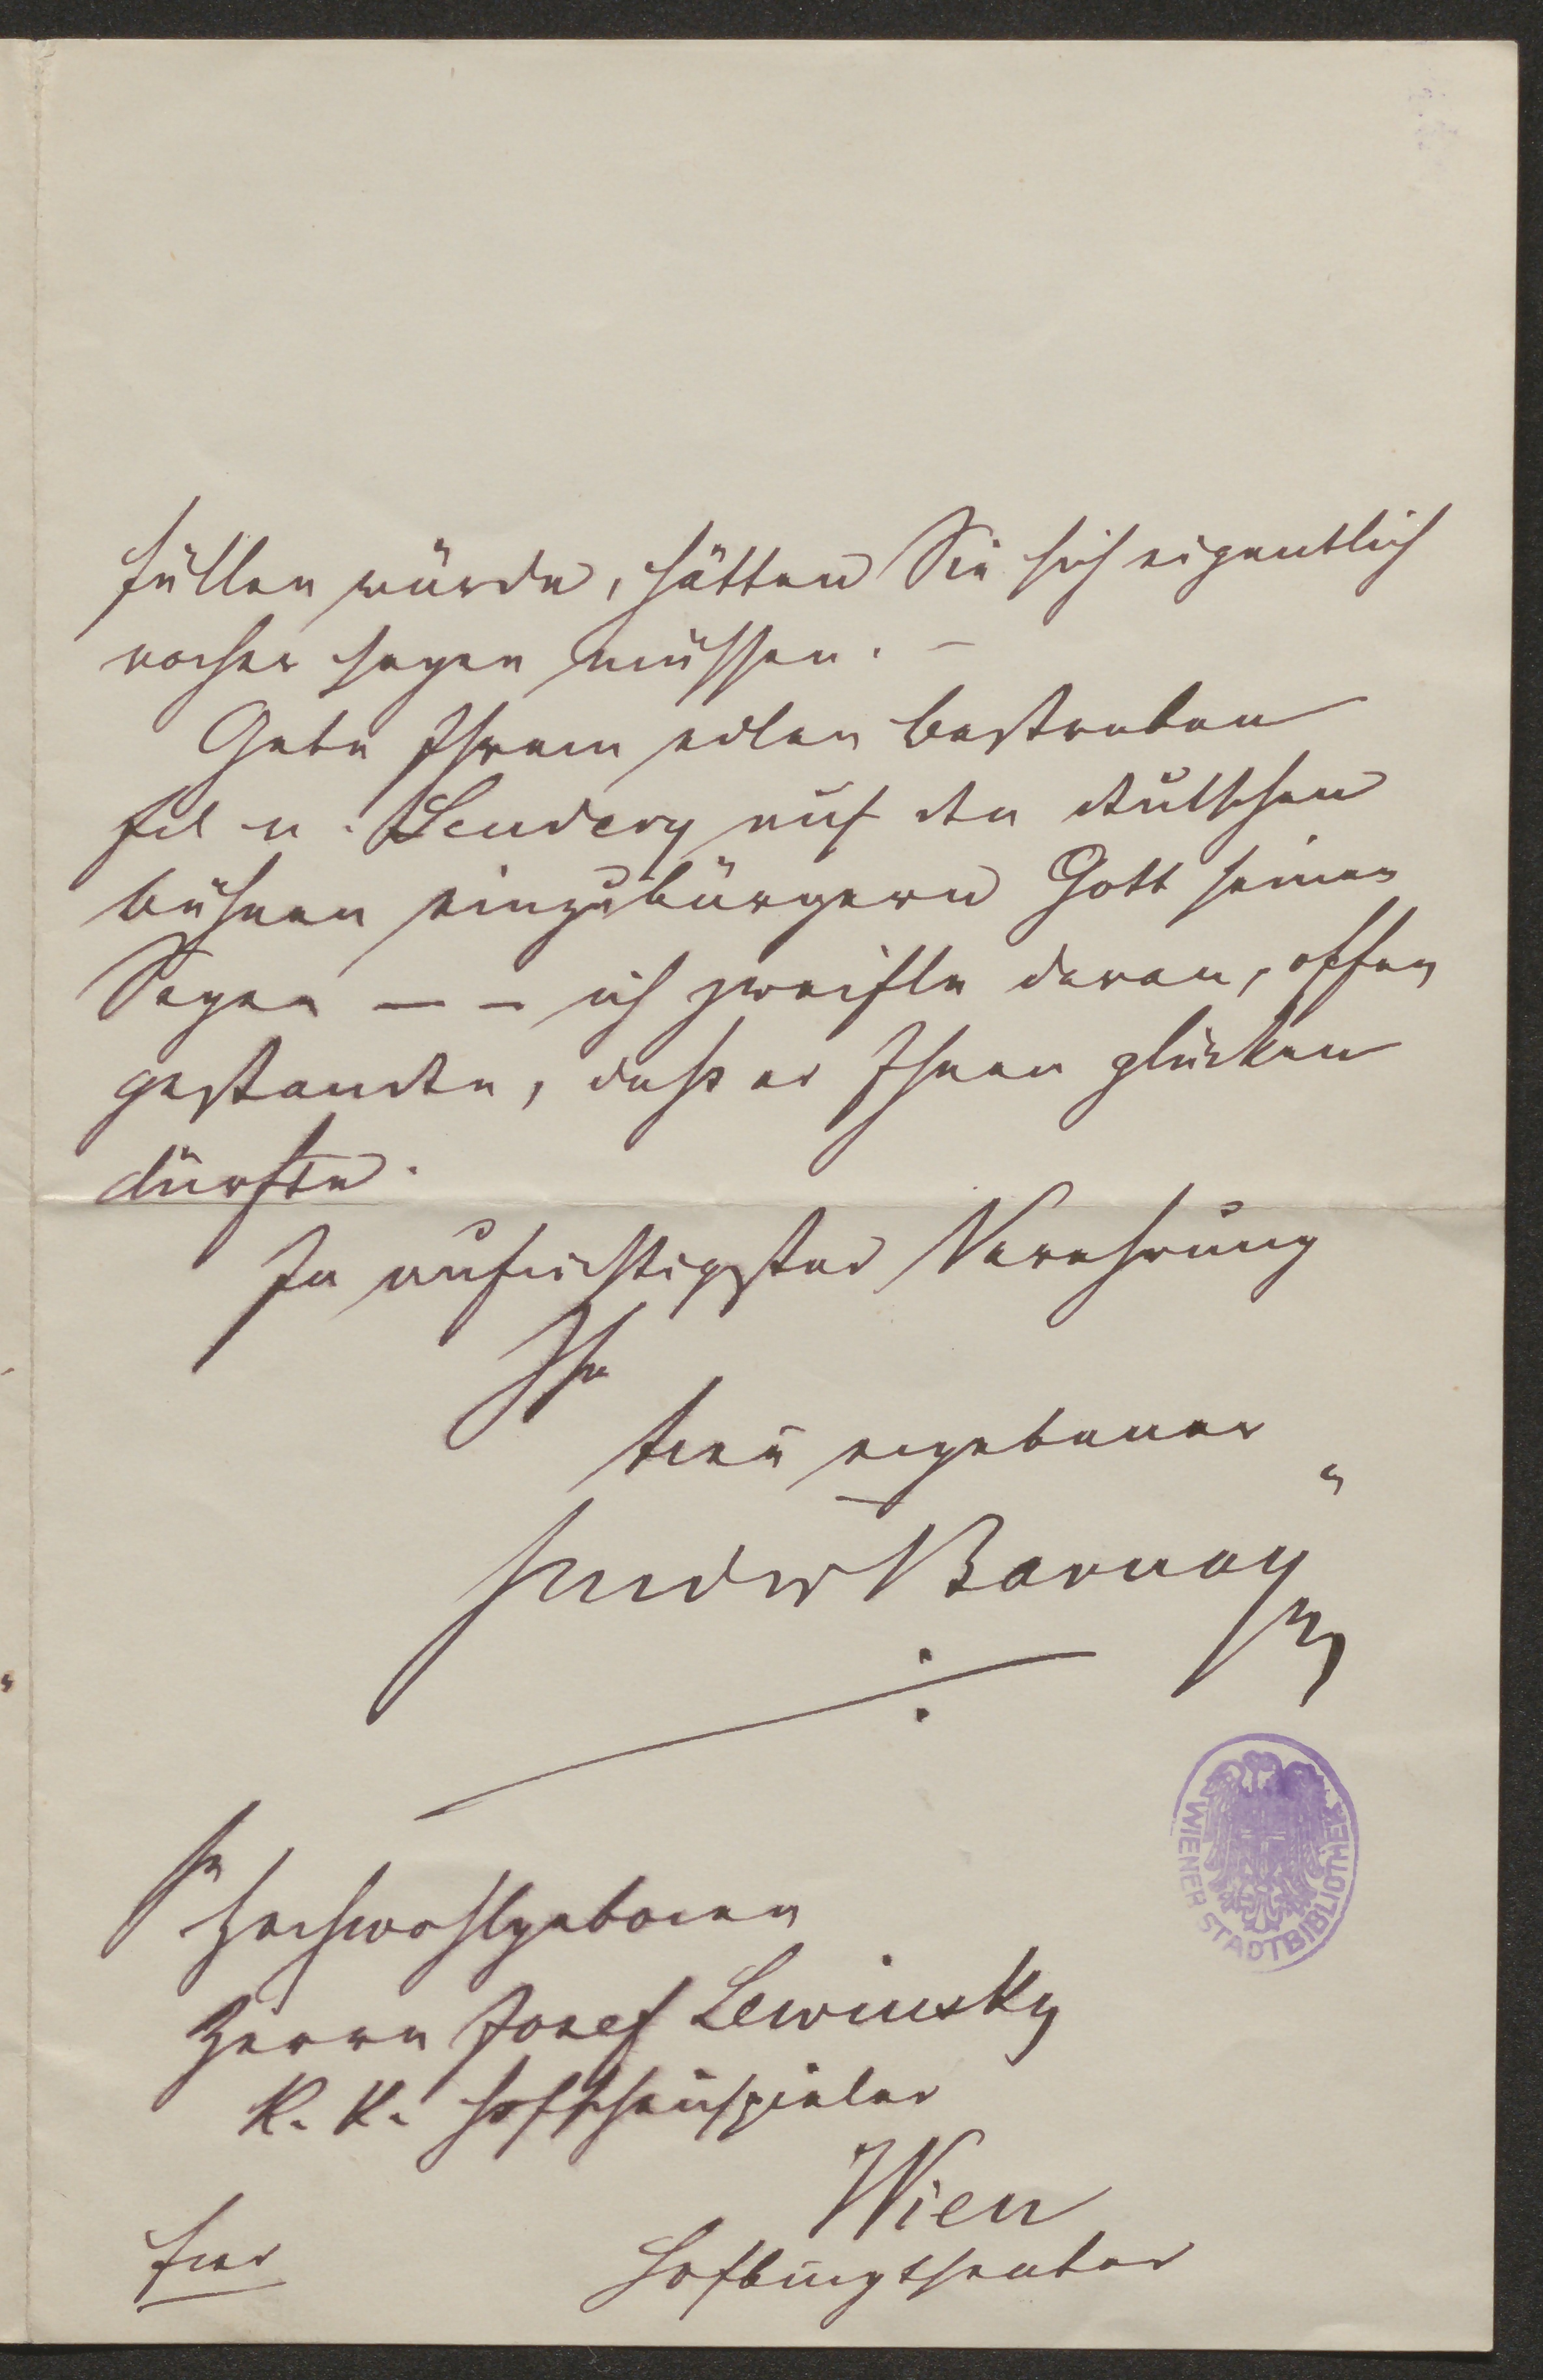 füllen würde, hätten Sie sich eigentlich
vorher sagen müssen. –
Gebe Ihrem edlen Bestreben
auf den deutschen
Bühnen einzubürgern Gott seinen
Segen — – ich zweifle daran, offen
gestanden, daß es Ihnen glücken
dürfte.
In aufrichtigster Verehrung
Ihr
treu ergebener
Ludw Barnay
Sr
Hochwohlgeboren
Herrn Josef Lewinsky
K. K. Hofschauspieler
Wien
Hofburgtheater
WIENER STADTBIBLIOTHEK